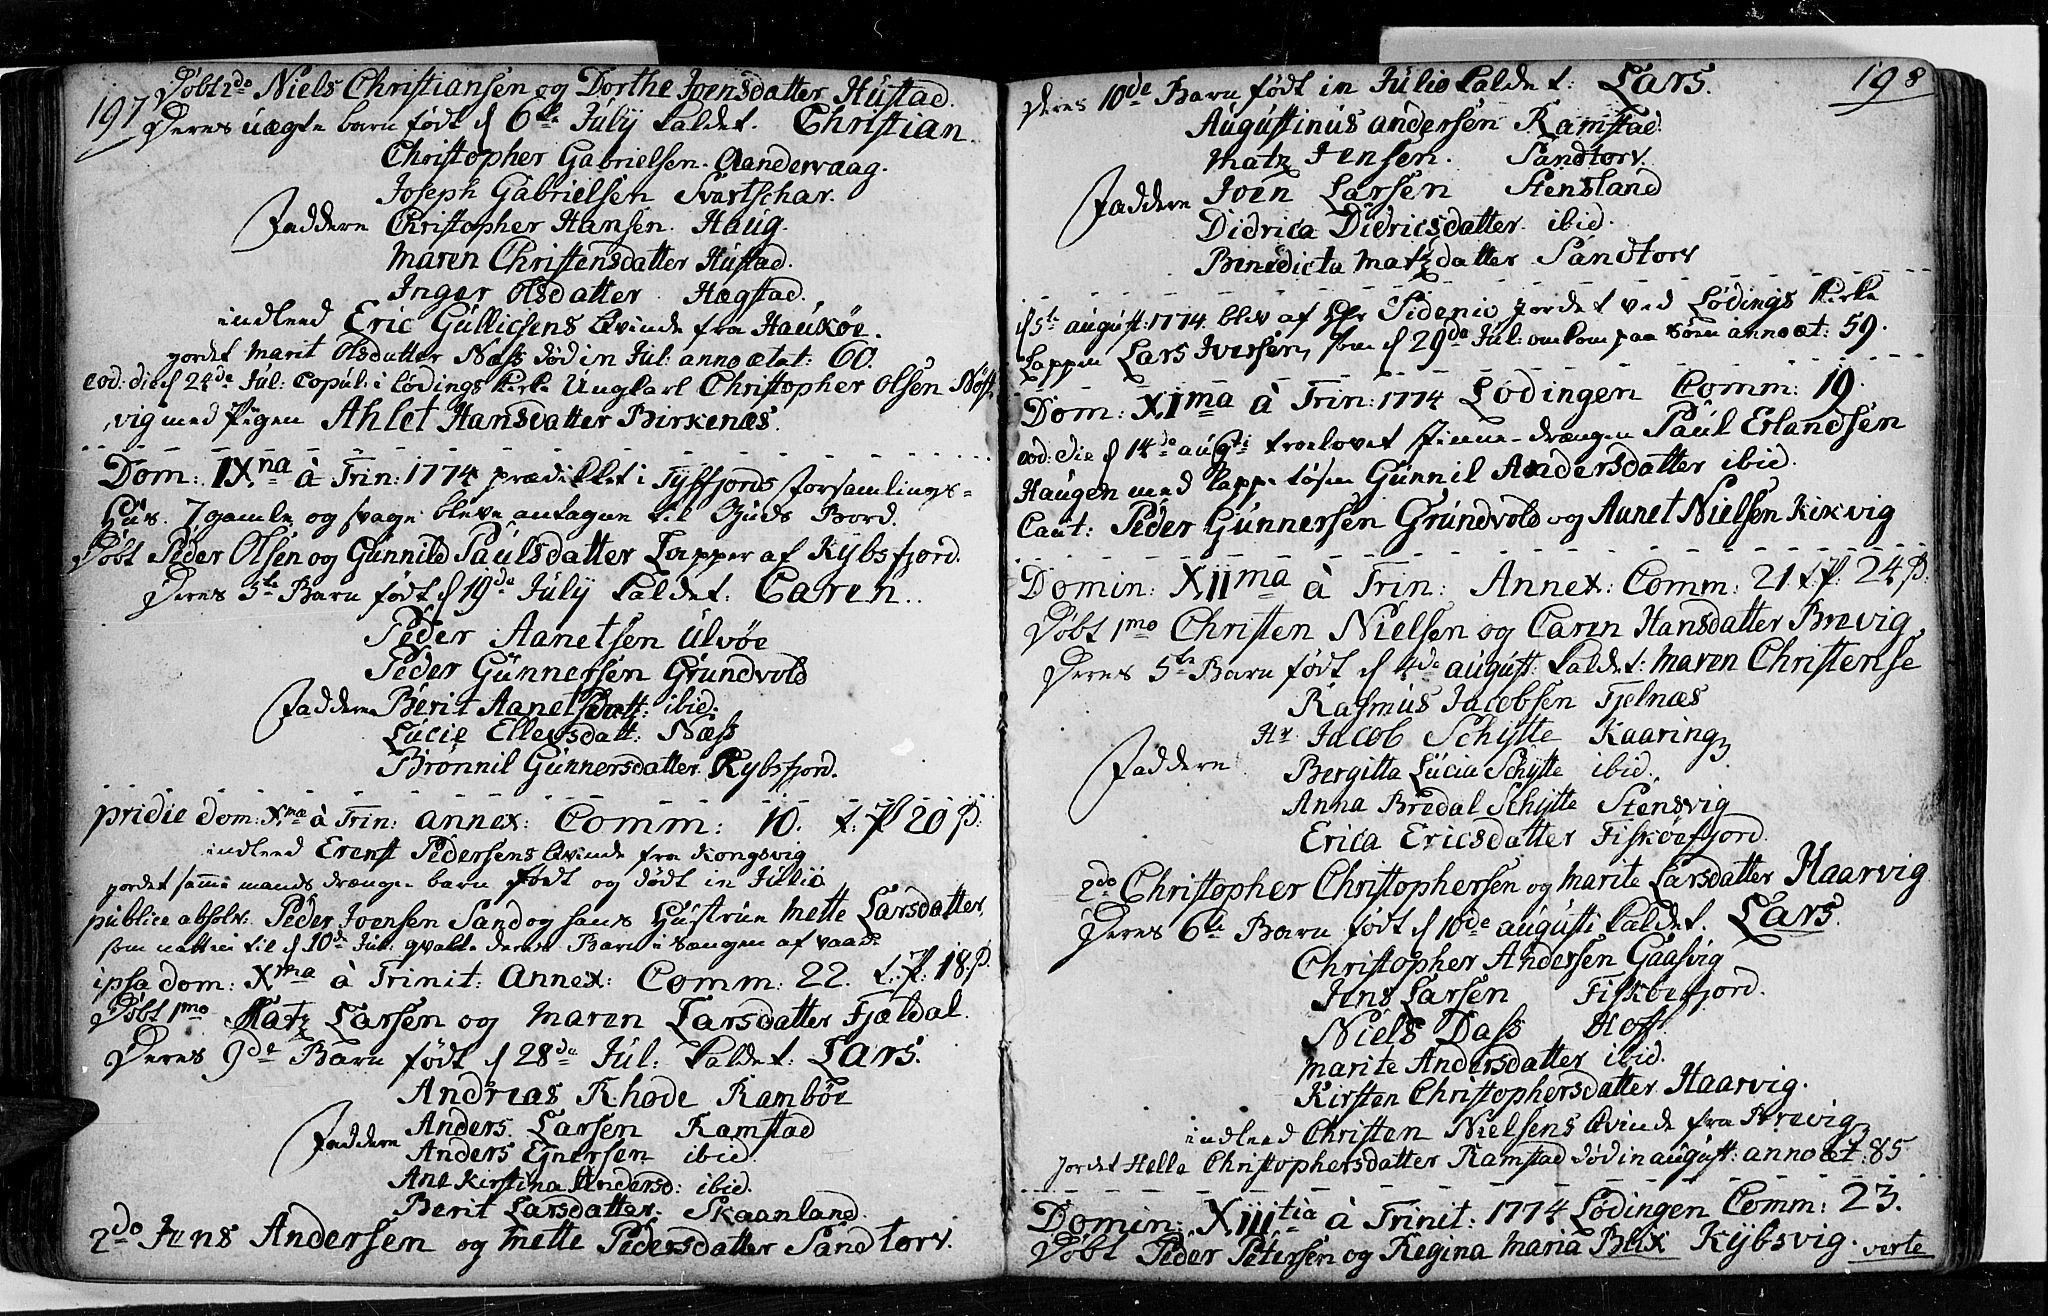 197
Døbt 2do Niels Christiansen og Dorthe Joensdatter Hustad.
Deres uægte barn født d 6te July kaldet. Christian
Christopher Gabrielsen. Aandervaag.
Joseph Gabrielsen Svartschar.
Faddere Christopher Hansen. Haug.
Maren Christensdatter Hustad.
Inger Olsdatter Hægstad.
indleed Eric Gullicsens Qvinde fra Haukøe.
jordet Marit Olsdatter Næss død in Jul: anno ætat: 60.
eod: die d 24de Jul: Copul: i Lødings Kirke Ungkarl Christopher Olsen
vig med Pigen Ahlet Hansdatter Birkenæs.
Dom: IX.na à Trin: 1774 prædikket i Tysfjords forsamlings-
Hus. 7 gamle og svage bleve antagne til Guds Bord.
Døbt Peder Olsen og Gunnild Paulsdatter Lapper af Kybsfjord.
Deres 5te Barn født d 19de July kaldet: Caren.
Peder Aanetsen Ulvøe
Peder Gunnersen Grundvold
Faddere Berit Aanetsdatt: ibid.
Lucie Ellevsdatt: Næss
Brønnil Gunnersdatter Kybsfjord.
pridie dom: X.ma à Trin: annex: Comm: 10. t: P 20 β:
indleed Erenst Pedersens Qvinde fra Kongsvig
jordet samme mands drænge barn født og dødt in Julio
publice absolv: Peder Joensen Sand og hans Hustrue Mette Larsdatter,
som natten til d 10de Jul: qvalte deres Barn i sængen af vaade
ipsa dom: X.ma à Trinit: Annex: Comm: 22. t: P: 18 β.
Døbt 1mo Matz Larsen og Maren Larsdatter Fjældal.
Deres 9de Barn født d 28de Jul: kaldet: Lars.
Andreas Rhode Rambøe
Anders Larsen Ramstad
Faddere Anders Ejnersen ibid.
Ane Kirstina Andersd: ibid.
Berit Larsdatter. Skaanland.
2do Jens Andersen og Mette Pedersdatter Sandtorv.
198
Deres 10de Barn født in Julio kaldet: Lars.
Augustinus Andersen Ramstad.
Matz Jensen. Sandtorv.
Faddere Joen Larsen Stensland
Didrica Didricsdatter. ibid.
Benedicta Matzdatter Sandtorv
d 5te august: 1774 blev af Hr Sidenio jordet ved Lødings Kirke
Lappen Lars Iversen, som d 29de Jul: omkom paa Søen anno æt: 59.
Dom: XI.ma à Trin: 1774 Lødingen Comm: 19.
eod: die d 14de augti troelovet Finne-drængen Paul Erlandsen
Haugen med Lappe tøsen Gunnil Andersdatter ibid.
Caut: Peder Gunnersen Grundvold og Aanet Nielsen Kixvig
Domin: XII.ma à Trin: Annex: Comm: 21. t: P: 24 β:
Døbt 1mo Christen Nielsen og Caren Hansdatter Brevig
Deres 5te Barn født d 4de august: kaldet: Maren Christense
Rasmus Jacobsen Fjelnæs
Hr. Jacob Schytte Kaaring
Faddere Bergitta Lucia Schytte ibid.
Anna Bredal Schytte Stensvig
Erica Ericsdatter Fiskøefjord.
2do Christopher Christophersen og Marite Larsdatter Haarvig
Deres 6te Barn født d 10de augusti kaldet. Lars.
Christopher Andersen Gaasvig
Jens Larsen Fiskøefjord.
Niels Dass Hoff
Marite Andersdatter ibid.
Kirsten Christophersdatter Haarvig.
indleed Christen Nielsens Qvinde fra Brevig
jordet Helle Christophersdatter Ramstad død in august: anno æt: 85
Domin: XIII.tia à Trinit: 1774 Lødingen Comm: 23.
Døbt Peder Petersen og Regina Maria Blix Kybsvig.
verte